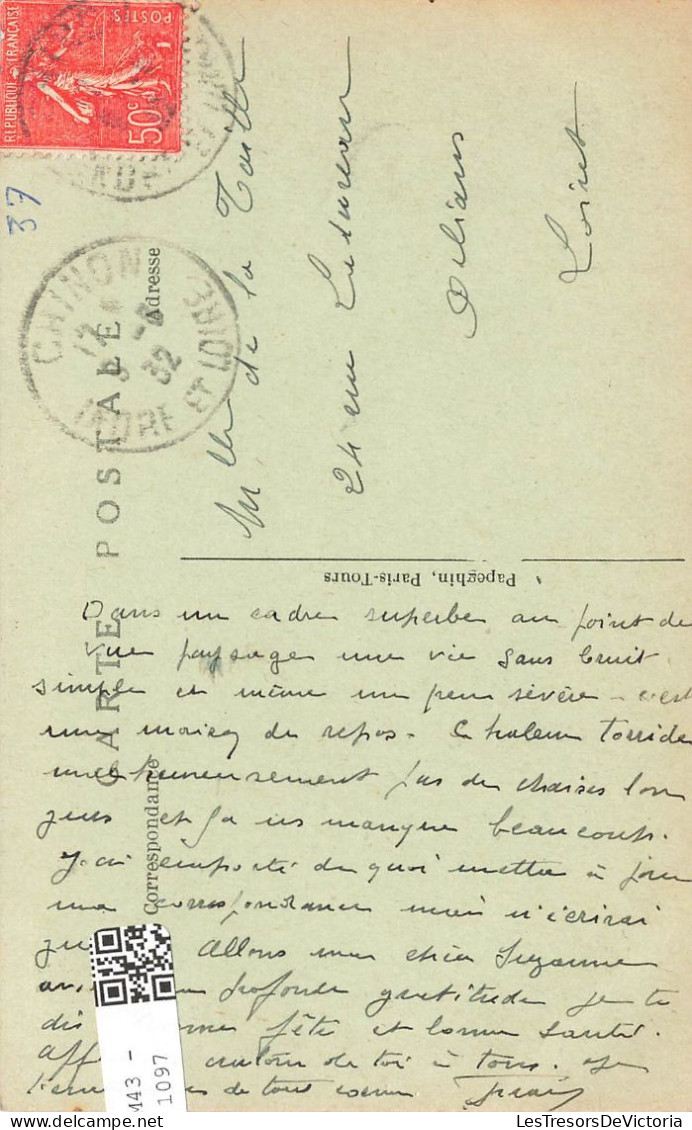 RÉPUBLIQUE FRANÇAISE
POSTES
50c
37
CHINON
12
5 -8
32
INDRE ET LOIRE
CARTE POSTALE
Adresse
Correspondance
Papeghin, Paris-Tours
Mlle de la Taille
24 rue
Orléans
Loiret
Dans un cadre superbe au point de
vue paysage une vie sans bruit
simple et même un peu sévère - c'est
une maison de repos. Chaleur torride
malheureusement pas de chaises lon
gues et ça ns manque beaucoup.
J'ai emporté de quoi mettre à jour
ma correspondance mais n'écrirai
Allons ma chère Suzanne
profonde gratitude je te
dis fête et bonne santé.
autour de toi à tous. Je
de tout coeur.
M43 -
1097
LesTresorsDeVictoria.com